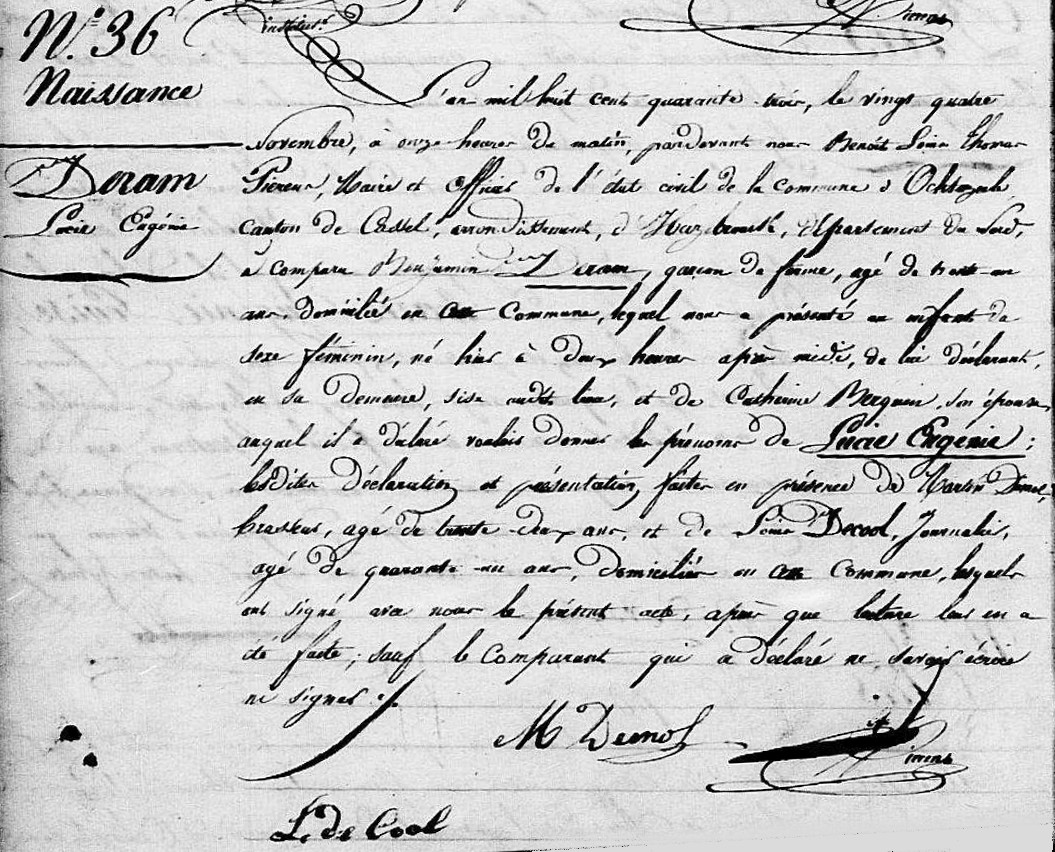 N.° 36
Naissance
Deram
Lucie Eugénie
institut.r
Pierens
L'an mil huit cent quarante trois, le vingt quatre
Novembre, à onze heures du matin, pardevant nous Benoit Louis Thomas
Pierens, Maire et Officier de l'état civil de la commune d'Ochtezeele
Canton de Cassel, arrondissement, d'Hazebrouck, département du Nord,
a comparu Benjamin Deram, garçon de ferme, agé de trente un
ans, domicilié en cette Commune, lequel nous a présenté un enfant de
sexe féminin, né hier à deux heures après midi, de lui déclarant,
en sa demeure, sise audit lieu, et de Catherine Berquin, son épouse,
auquel il a déclaré vouloir donner les prénoms de Lucie Eugénie;
lesdites déclaration et présentation, faites en présence de Martin
brasseur, agé de trente deux ans, et de Louis Decool, Journalier,
agé de quarante un ans, domiciliés en cette Commune, lesquels
ont signé avec nous le présent acte, après que lecture leur en a
été faite; sauf le Comparant qui a déclaré ne savoir écrire
ni signer ./.
M
Pierens
L. de Cool